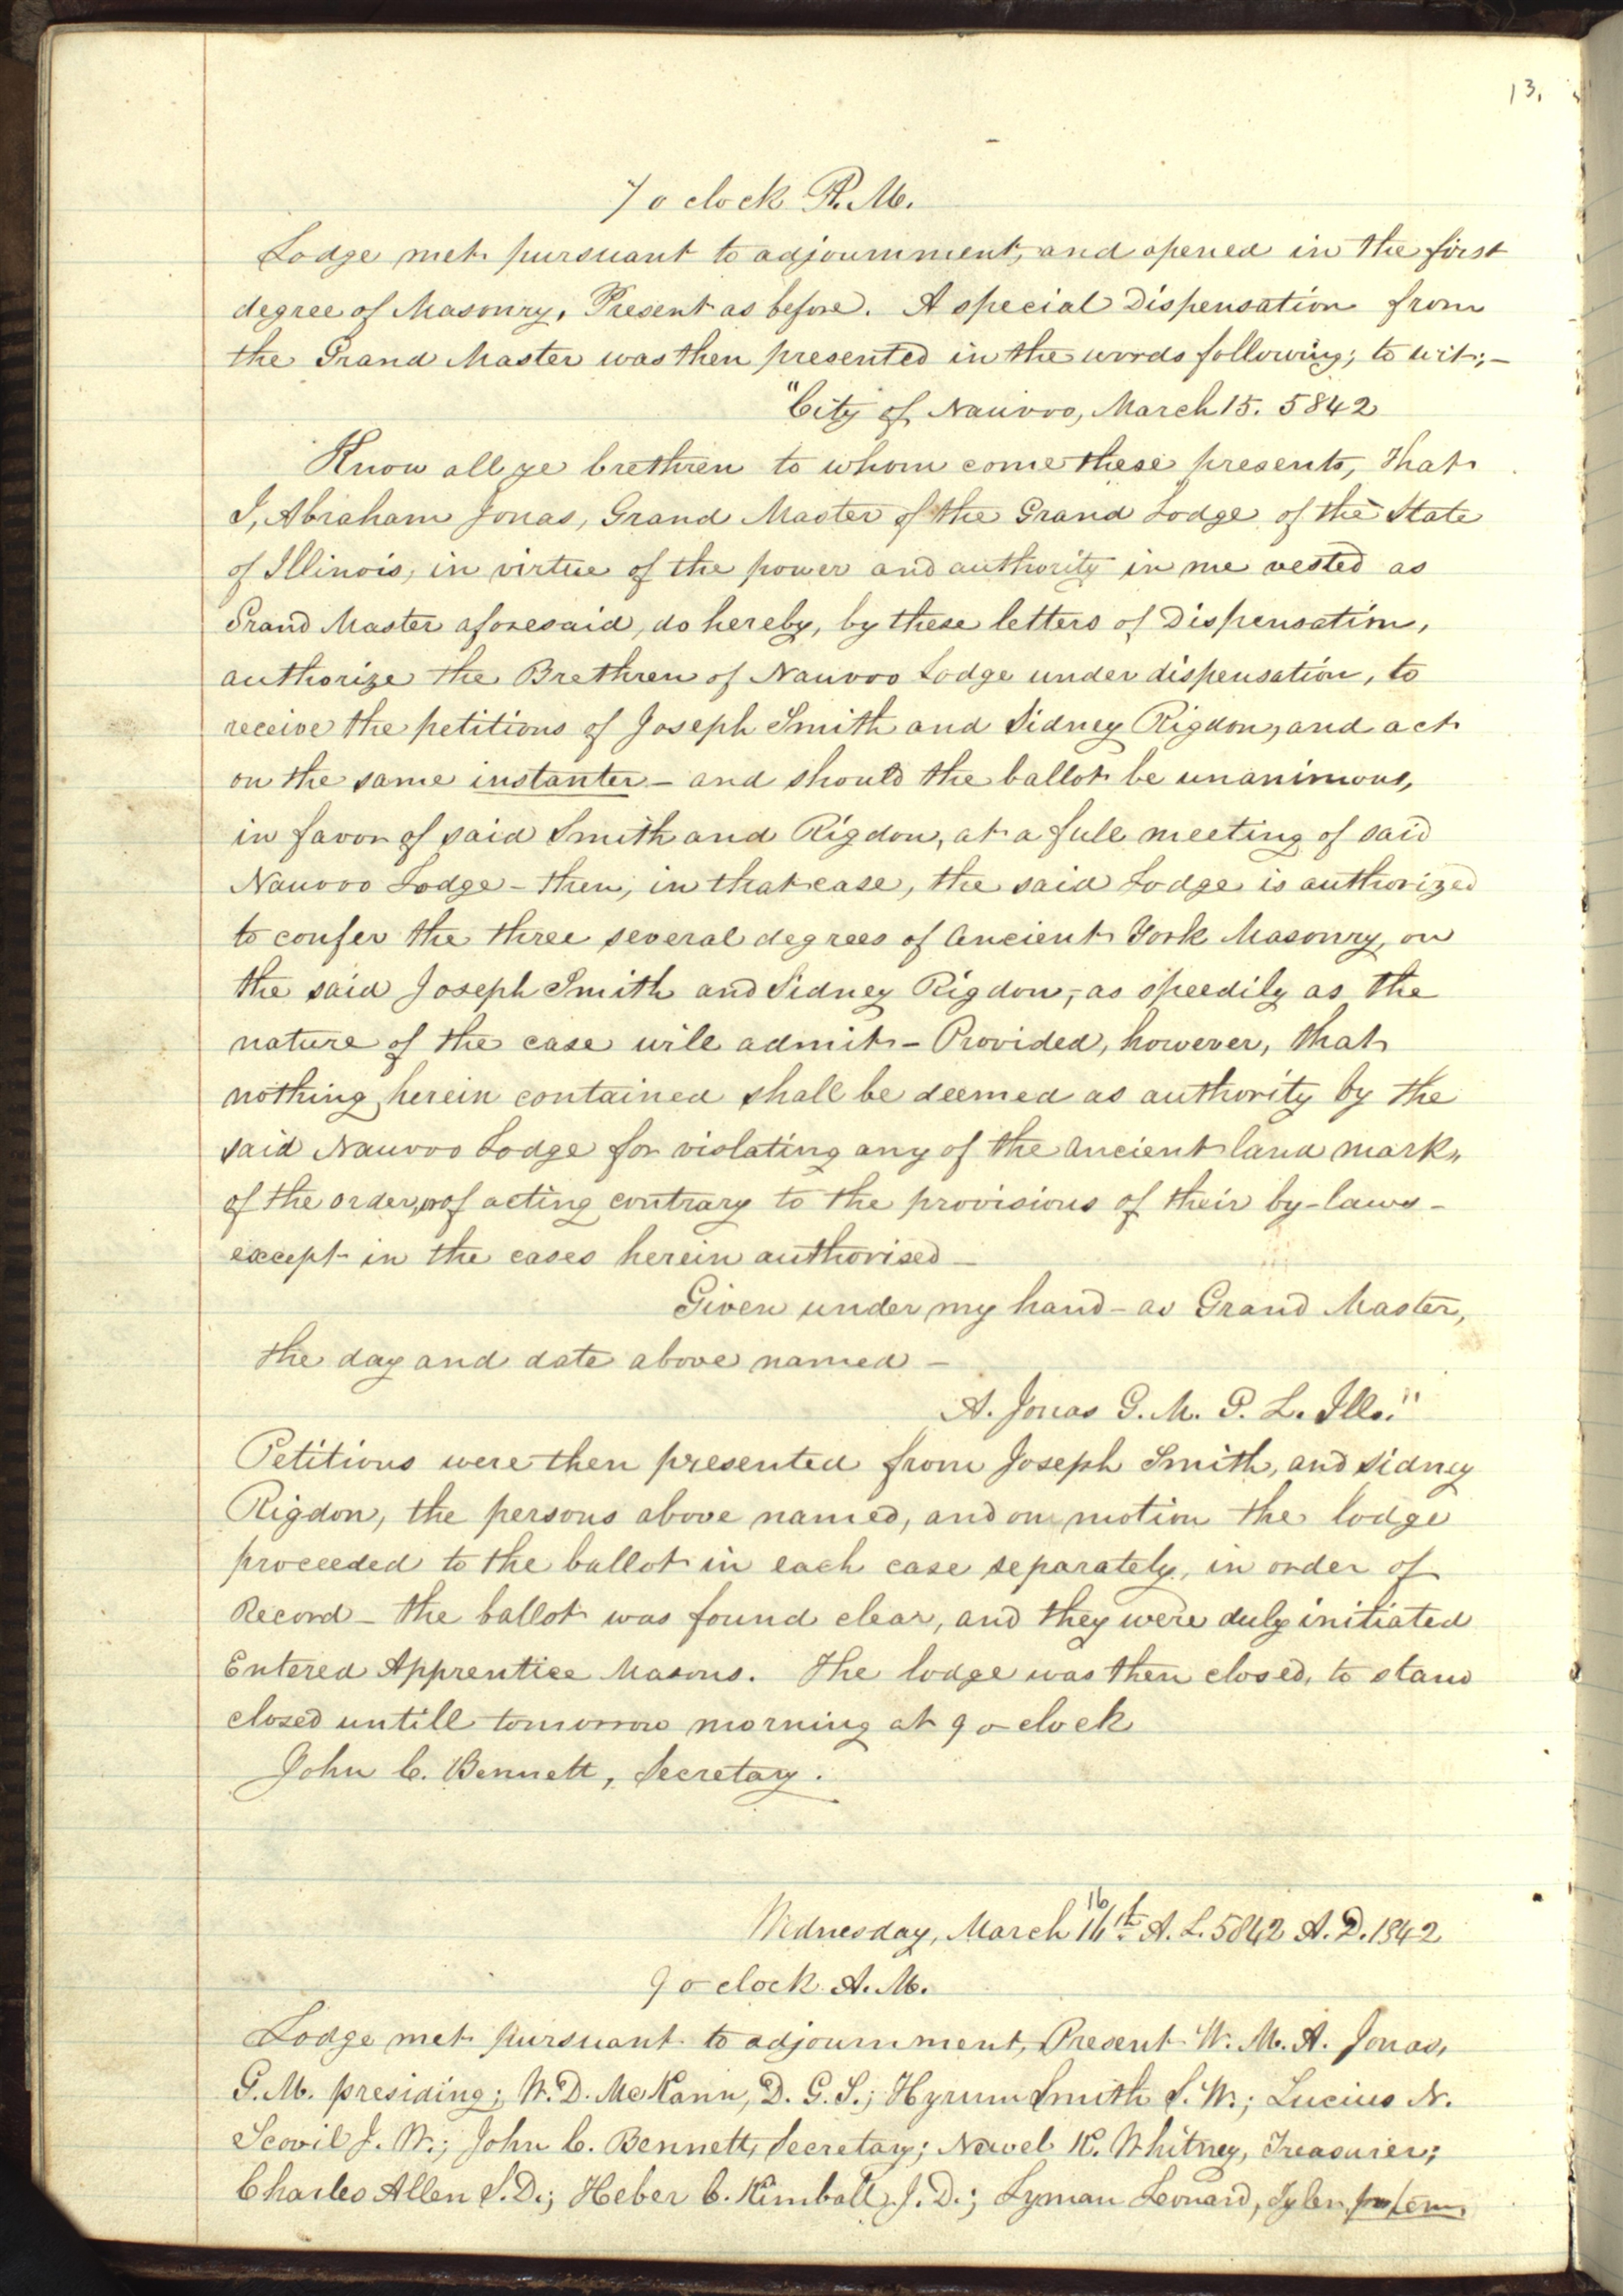 13.
7 o clock P. M.
Lodge met pursuant to adjournment, and opened in the first
degree of Masonry, Present as before. A special Dispensation from
the Grand Master was then presented in the words following; to wit;—
"City of Nauvoo, March 15. 5842
Know all ye brethren to whom come these presents, that
I, Abraham Jonas, Grand Master of the Grand Lodge of the State
of Illinois, in virtue of the power and authority in me vested as
Grand Master aforesaid, do hereby, by these letters of Dispensation,
authorize the Brethren of Nauvoo Lodge under dispensation, to
receive the petitions of Joseph Smith and Sidney Rigdon, and act
on the same instanter — and should the ballot be unanimous,
in favor of said Smith and Rigdon, at a full meeting of said
Nauvoo Lodge — then, in that case, the said Lodge is authorized
to confer the three several degrees of Ancient York Masonry, on
the said Joseph Smith and Sidney Rigdon, as speedily as the
nature of the case will admit — Provided, however, that
nothing herein contained shall be deemed as authority by the
said Nauvoo Lodge for violating any of the ancient land marks
of the order, or of acting contrary to the provisions of their by-laws —
except in the cases herein authorised —
Given under my hand — as Grand Master,
the day and date above named —
A. Jonas G. M. G. L. Ills."
Petitions were then presented from Joseph Smith, and Sidney
Rigdon, the persons above named, and on motion the lodge
proceeded to the ballot in each case separately, in order of
Record — the ballot was found clear, and they were duly initiated
Entered Apprentice Masons. The lodge was then closed, to stand
closed untill tomorrow morning at 9 o clock
John C. Bennett, Secretary.
16
Wednesday, March 16th. A. L. 5842 A. D. 1842
9 o clock A. M.
Lodge met pursuant to adjournment, Present W. M. A. Jonas,
G. M. presiding; W. D. McKann, D. G. S.; Hyrum Smith S. W.; Lucius N.
Scovil J. W.; John C. Bennett, Secretary; Newel K. Whitney, Treasurer;
Charles Allen S. D.; Heber C. Kimball J. D.; Lyman Leonard, Tyler, pro tem.